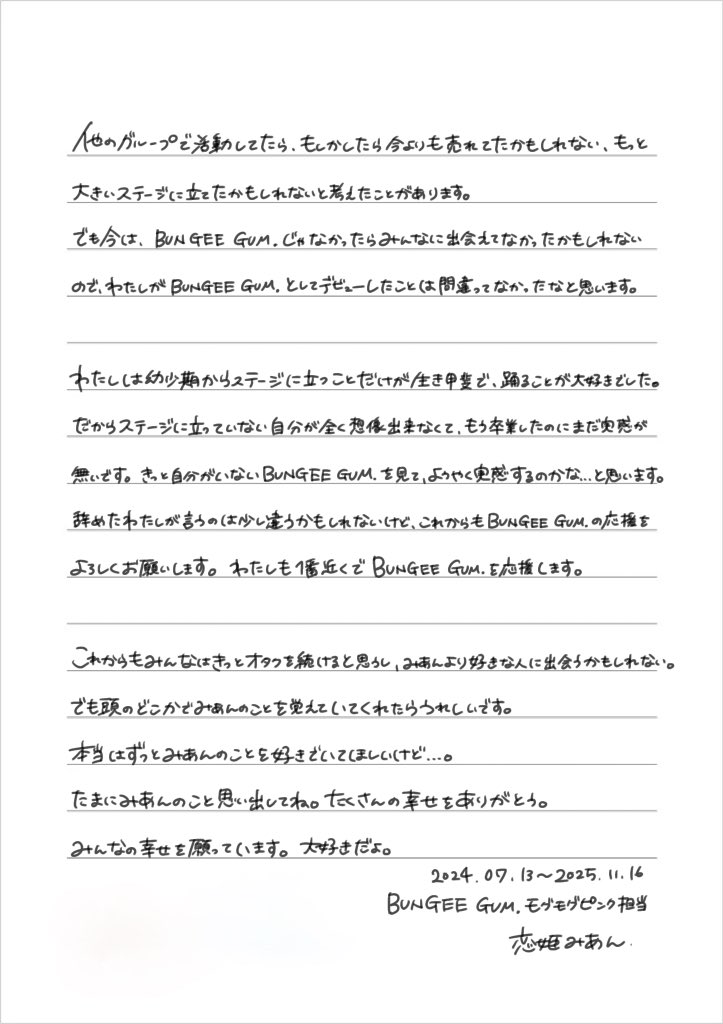 他のグループで活動してたら、もしかしたら今よりも売れてたかもしれない、もっと
大きいステージに立てたかもしれないと考えたことがあります。
でも今は、BUNGEE GUM.じゃなかったらみんなに出会えてなかったかもしれない
ので、わたしがBUNGEE GUM.としてデビューしたことは間違ってなかったなと思います。
わたしは幼少期からステージに立つことだけが生き甲斐で、踊ることが大好きでした。
だからステージに立っていない自分が全く想像出来なくて、もう卒業したのにまだ実感が
無いです。きっと自分がいないBUNGEE GUM.を見て、ようやく実感するのかな...と思います。
辞めたわたしが言うのは少し違うかもしれないけど、これからもBUNGEE GUM.の応援を
よろしくお願いします。わたしも1番近くでBUNGEE GUM.を応援します。
これからもみんなはきっとオタクを続けると思うし、みあんより好きな人に出会うかもしれない。
でも頭のどこかでみあんのことを覚えていてくれたらうれしいです。
本当はずっとみあんのことを好きでいてほしいけど...。
たまにみあんのこと思い出してね。たくさんの幸せをありがとう。
みんなの幸せを願っています。大好きだよ。
2024.07.13~2025.11.16
BUNGEE GUM.モグモグピンク担当
恋姫みあん.